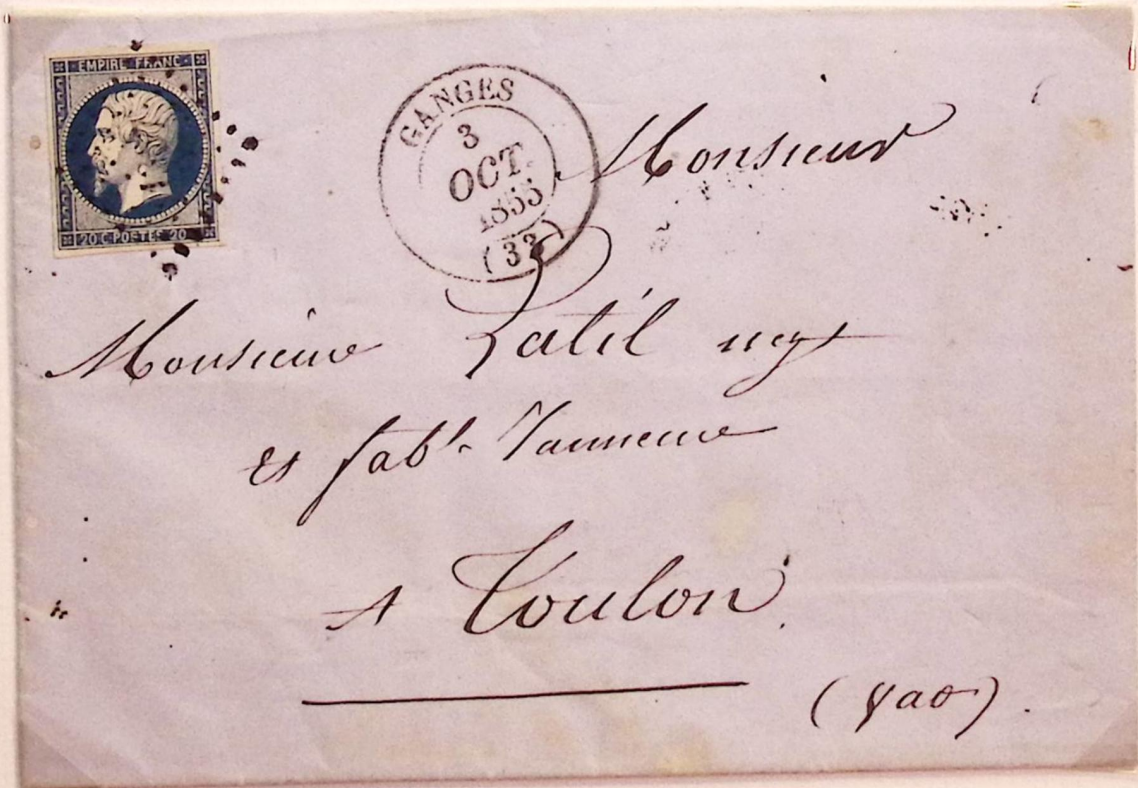 EMPIRE FRANC
20 C. POSTES 20
GANGES
3
OCT.
1855
(33)
Monsieur
Monsieur Latil negt
et fabt Tanneur
A Toulon
(Var).